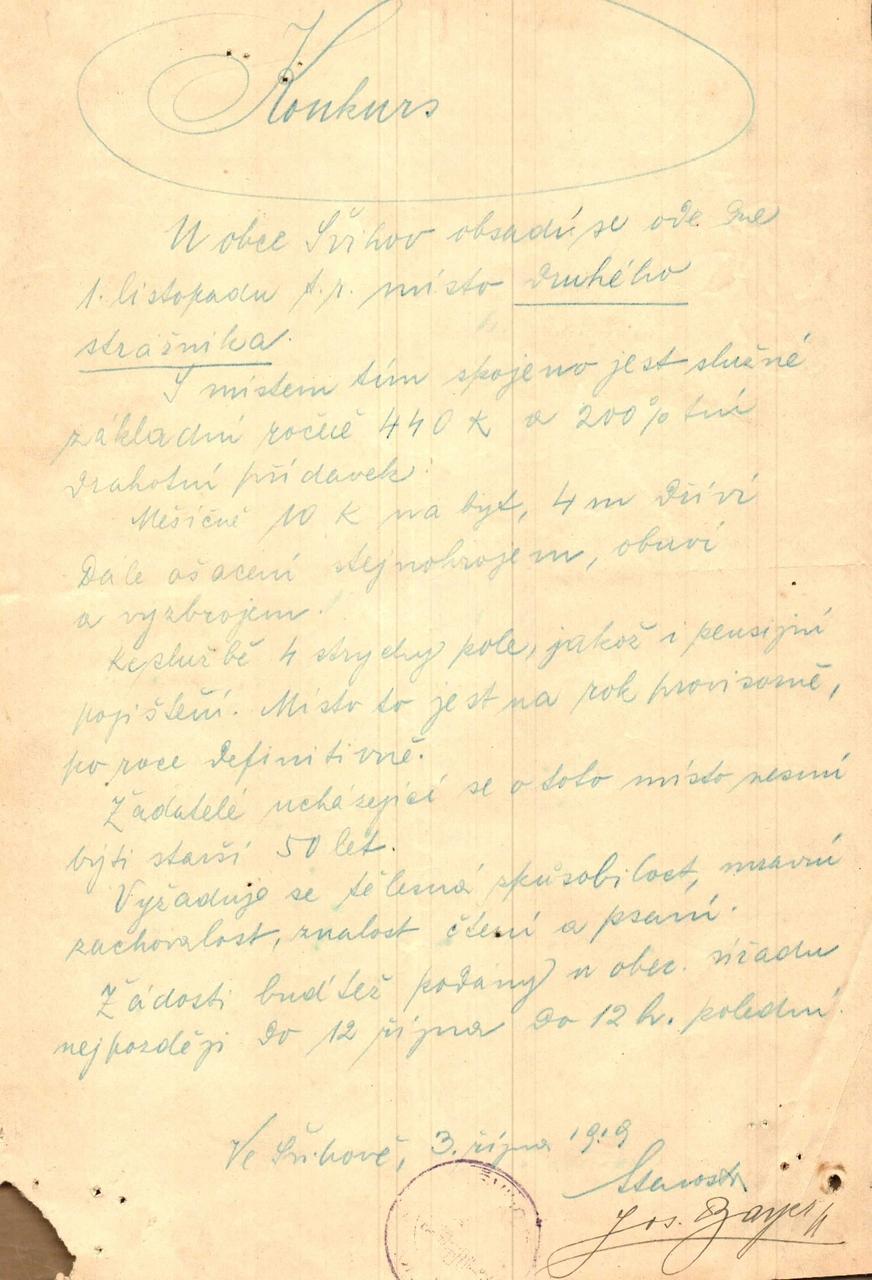 Konkurs
U obce Švihov obsadí se ode dne
1. listopadu t.r. místo druhého
strážníka.
S místem tím spojeno jest služné
základní ročně 440 K a 200% tní
drahotní přídavek.
Měsíčně 10 K na byt, 4 m dříví
Dále ošacení stejnokrojem, obuví
a vyzbrojem.
Ke službě 4 strychy pole, jakož i pensijní
pojištění. Místo to jest na rok provisorně,
po roce definitivně.
Žadatelé ucházející se o toto místo nesmí
býti starší 50 let.
Vyžaduje se tělesná spůsobilost, mravní
zachovalost, znalost čtení a psaní.
Žádosti buďtež podány u obec. úřadu
nejpozději do 12 října do 12 h. polední.
Ve Švihově, 3. října 1919
Starosta
Jos. Bayer